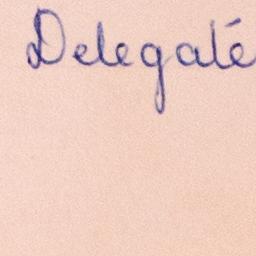 Delegaté